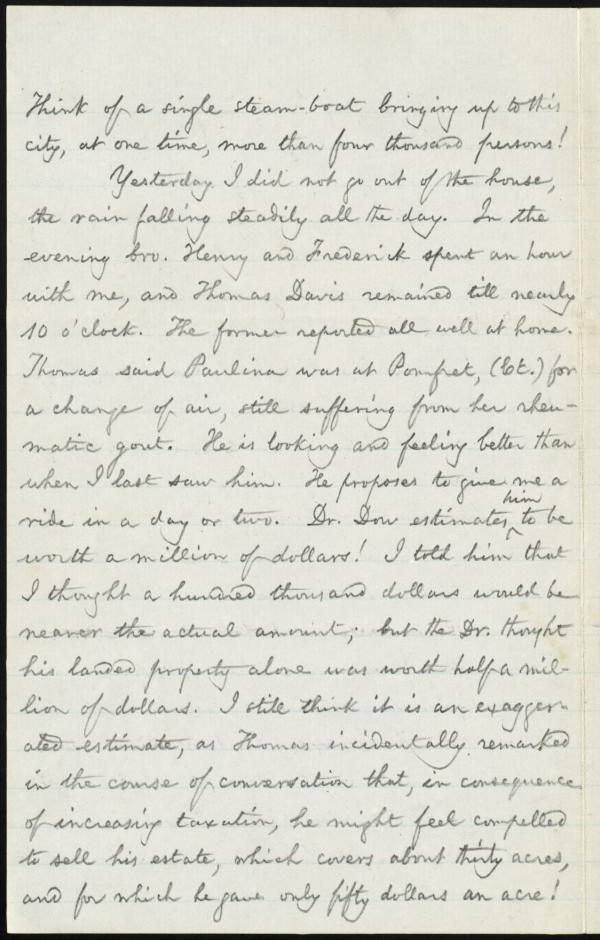 Think of a single steam-boat bringing up to this
city, at one time, more than four thousand persons!
Yesterday I did not go out of the house,
the rain falling steadily all the day. In the
evening bro. Henry and Frederick spent an hour
with me, and Thomas Davis remained till nearly
10 o'clock. The former reported all well at home.
Thomas said Paulina was at Pomfret, (Ct.) for
a change of air, still suffering from her rheu-
matic gout. He is looking and feeling better than
when I last saw him. He proposes to give me a
ride in a day or two. Dr. Dow estimates him to be
worth a million of dollars! I told him that
I thought a hundred thousand dollars would be
nearer the actual amount; but the Dr. thought
his landed property alone was worth half a mil-
lion of dollars. I still think it is an exagger-
ated estimate, as Thomas incidentally remarked
in the course of conversation that, in consequence
of increasing taxation, he might feel compelled
to sell his estate, which covers about thirty acres,
and for which he gave only fifty dollars an acre!